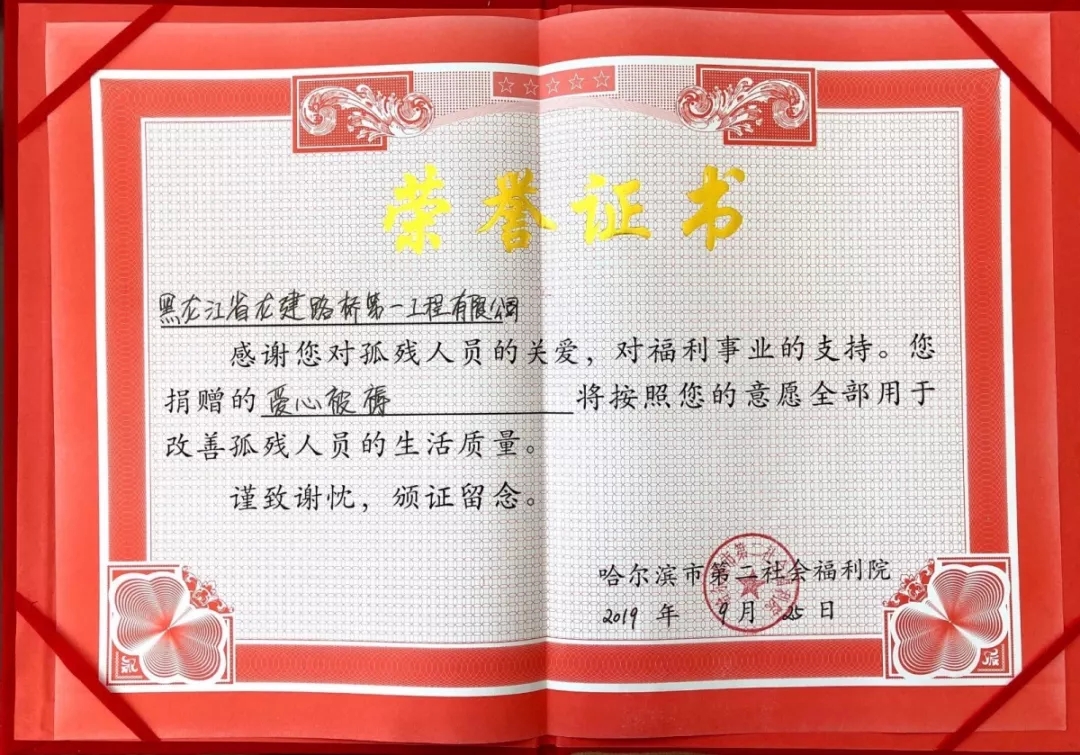 荣誉证书
黑龙江省龙建路桥第一工程有限公司
感谢您对孤残人员的关爱，对福利事业的支持。您
捐赠的爱心被褥将按照您的意愿全部用于
改善孤残人员的生活质量。
谨致谢忱，颁证留念。
哈尔滨市第二社会福利院
2019年9月25日